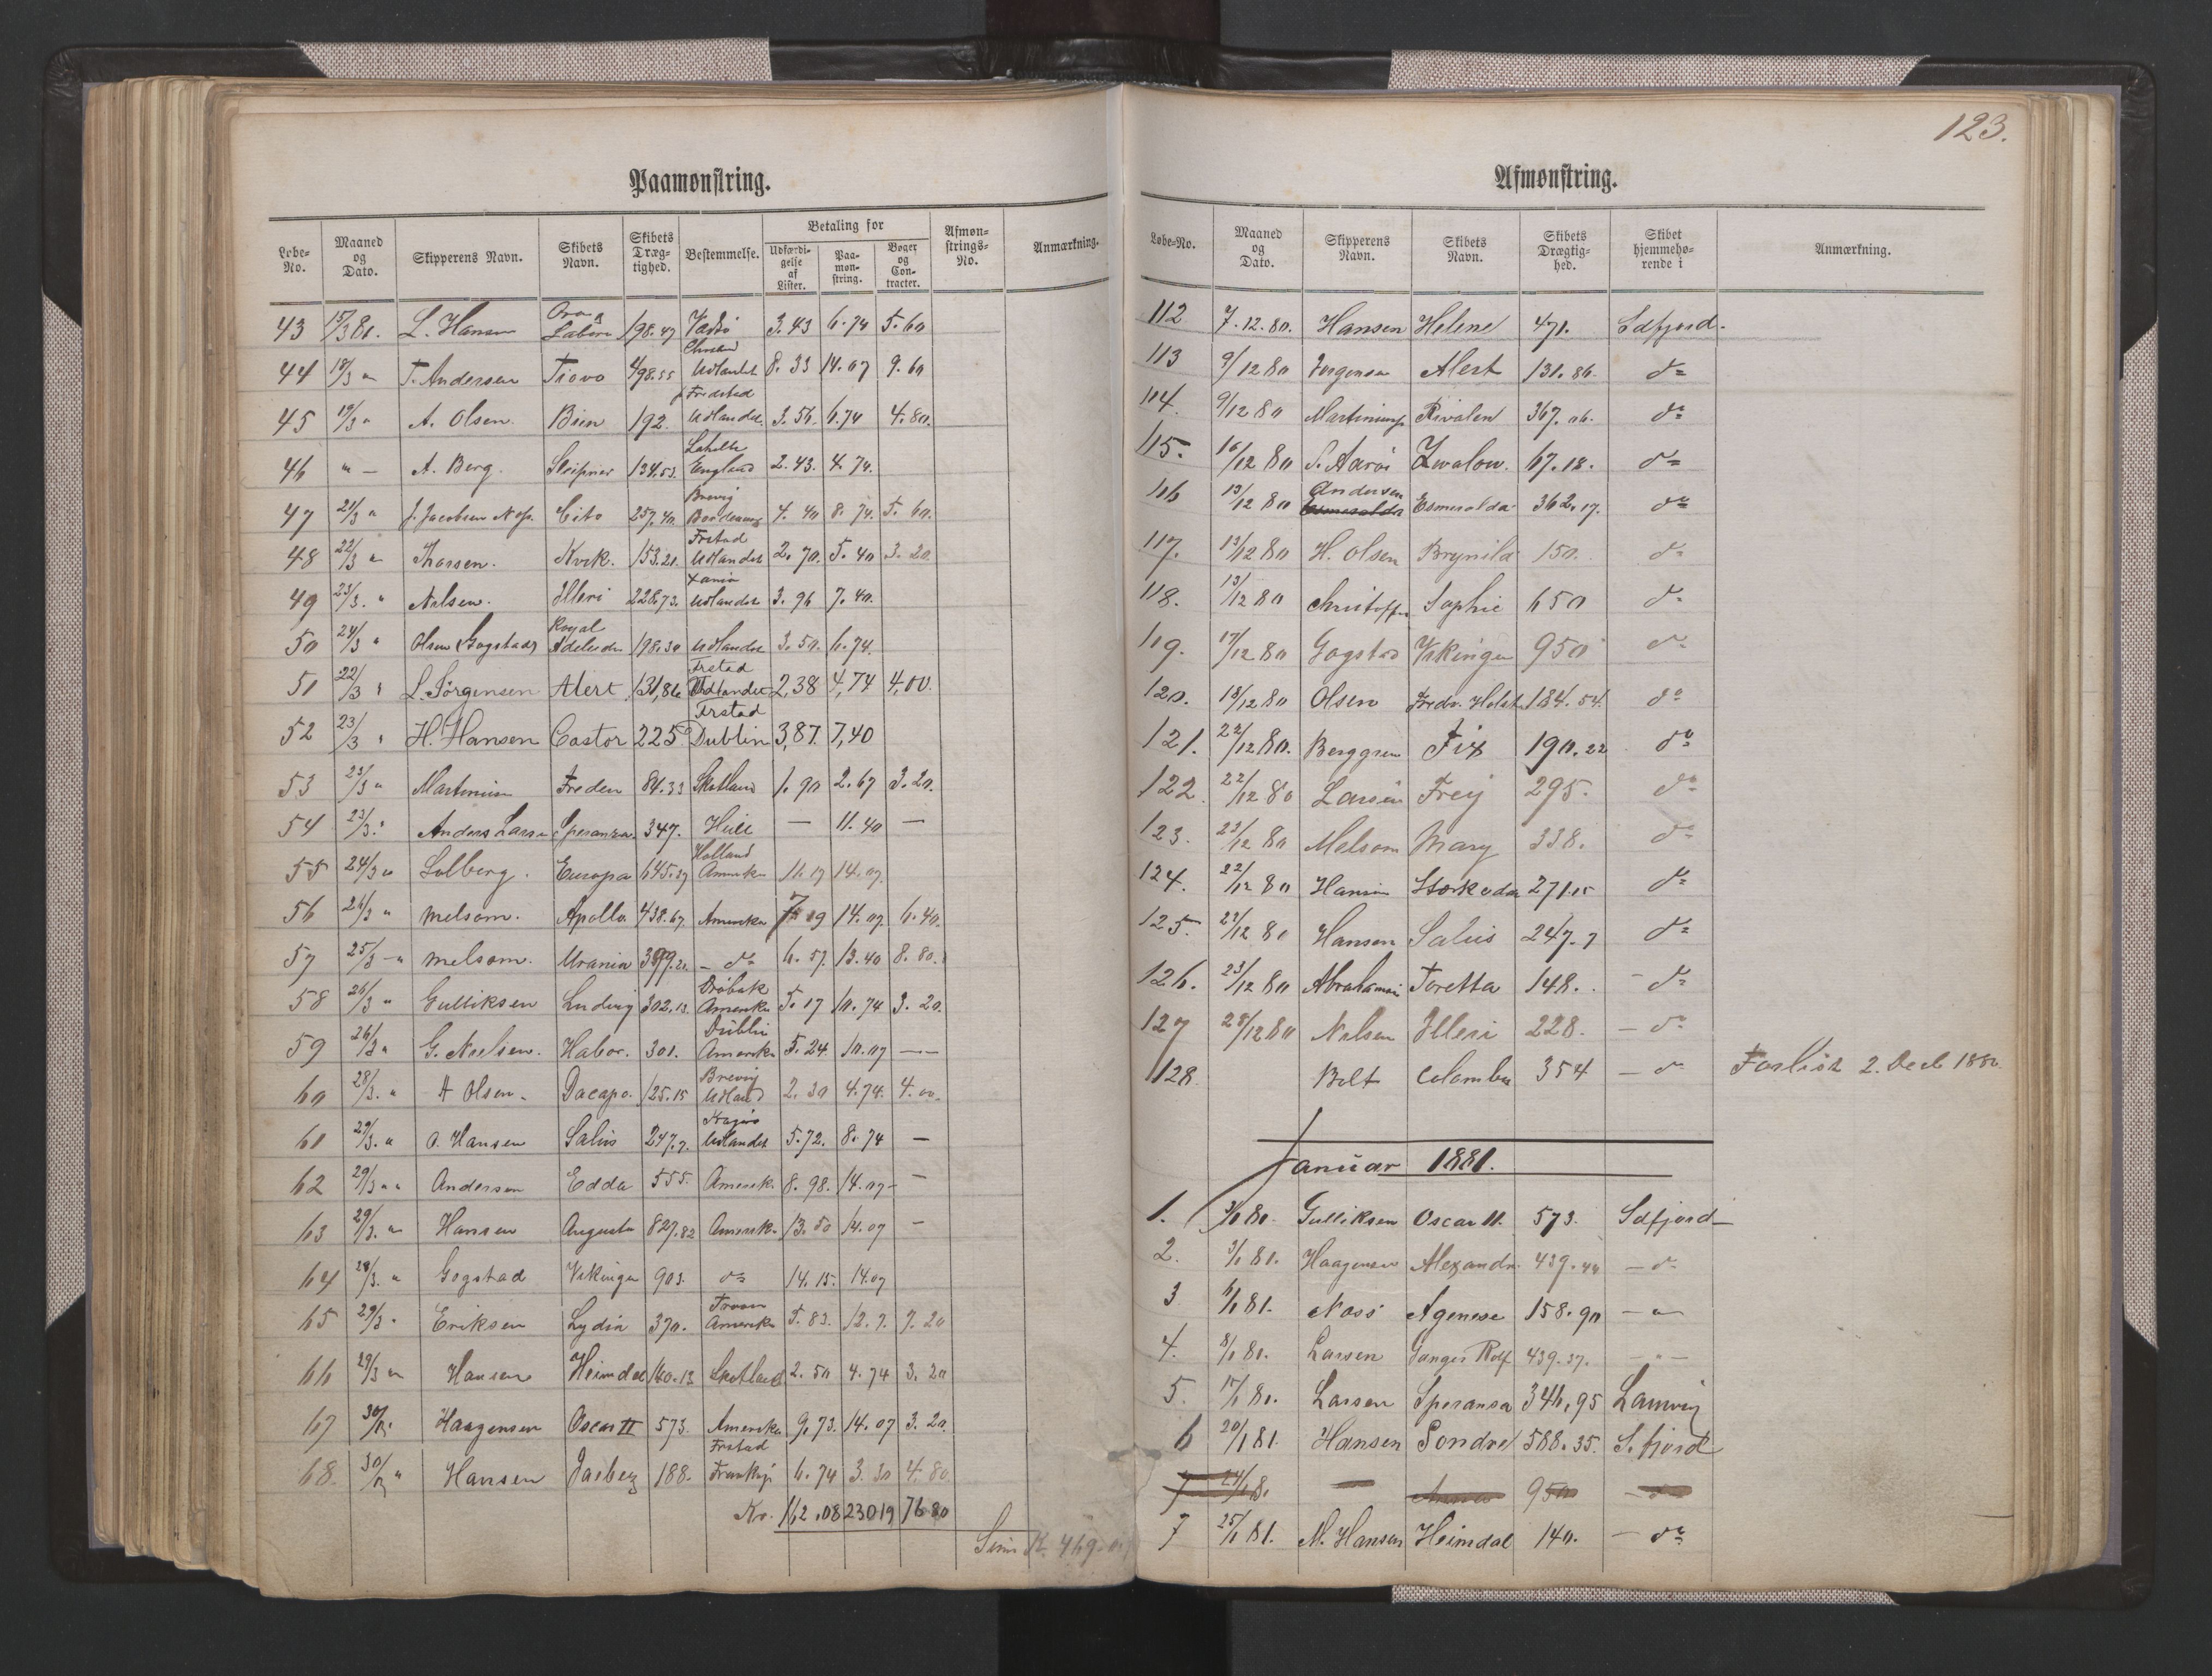 123.
Paamønstring.
Løbe-No. | Maaned og Dato. | Skipperens Navn. | Skibets Navn. | Skibets Dræg-tighed. | Bestemmelse. | Betaling for | Udfærdi-gelse af Lister. | Paa-møn-string. | Bøger og Con-tracter. | Afmøn-strings-No. | Anmærkning.
43 15/3 81. L. Hansen Ora & Labora 198.47 Vadsö 3.43 6.74 5.60
44 18/3 " T. Andersen Tiovo 498.55 Udlandet 8.33 14.07 9.60
45 19/3 " A. Olsen. Bien 192. Fredstad Udlandet. 3.56. 6.74 4.80.
46 " — A. Berg. Sleipner 134.53. England 2.43. 4.74.
47 21/3 " J. Jacobsen Cito 257.40. Brevig 4.40 8.74. 5.60.
48 22/3 " Thorsen. Kvik. 153.21. Frstad Udlandet 2.70. 5.40 3.20
49 23/3. " Nilsen. Illeri 228.73. Xania Udlandet 3.96 7.40.
50 24/3 " Olsen (Gogstad) Royal 198.30 Udlandet 3.50. 6.74.
51 22/3 " L. Jörgensen Alert 131,86 Frstad Udlandet 2,38 4,74 4,00.
52 23/3 " H. Hansen Castor 225 Frstad Dublin 3,87. 7,40
53 23/3 " Martinsen Freden 84.33 Skotland 1.90 2.67 3.20.
54 23/3. " Anders Larsen Speranza. 347. Hull — 11.40 —
55 24/3 " Solberg. Europa 645.37 Holland Amerika 11.17 14.07.
56 26/3 " Melsom. Apollo 438.67 Amerika 7.19 14.07. 6.40.
57 25/3 — " Melsom. Urania 399.21. — do 6.57. 13.40 8.80.
58 26/3 " Gulliksen Ludvig 302.13. Dröbak Amerika 5.17 10.74 3.20.
59 26/3 " G. Nielsen. Habor. 301. Dublin Amerika 5.24. 10.07 —
60 28/3. " A Olsen. Dacapo. 125.15 Brevig Udland 2.30 4.74. 4.00.
61 29/3. " O. Hansen Salus 247.7. Kragerö Udlandet 5.72. 8.74 —
62 29/3 " Andersen Edda 555. Amerik. 8.98. 14.07 —
63 29/3. " Hansen Augusta 827.82 Amerik. 13.50 14.07 —
64 28/3. " Gogstad Vikingen 903. do 14.15. 14.07
65 29/3 " Eriksen Lydia 370. Amerika 5.83. 12.7. 7.20
66 29/3 " Hansen Heimdal 140.13 Skotland 2.50 4.74 3.20
67 30/3 " Haagensen Oscar II 573. Amerika 9.73. 14.07 3.20.
68. 30/3 " Hansen 188. Frstad 6.74 3.30 4.80.
Kr. 162.08 230 19 76 80
469.07
Afmønstring.
Løbe-No. | Maaned og Dato. | Skipperens Navn. | Skibets Navn. | Skibets Drægtig-hed. | Skibet hjemmehø-rende i | Anmærkning.
112 7.12.80. Hansen Helene 471. Sdfjord.
113 9/12 80 Jorgensen Alert 131.86. do
114. 9/12 80 Rivalen 367.06. do
115. 10/12 80 S. Aaröe Zwalow. 67.18. do
116 13/12 80 Andersen Esmeralda Esmeralda 362.17. do
117. 13/12 80 H. Olsen Brynild 150. do
118. 13/12 80 Christoffn Sophie 650 do
119. 17/12 80 Gogstad Vikingen 950 do
120. 18/12 80 Olsen Fredr. Holst 184.54. do
121. 22/12 80. Berggren Fix 190.22 do
122. 22/12 80 Larsen Frey 295. do
123. 23/12 80 Melsom Mary 338. do
124. 22/12 80 Hansen Stærkodder 271.15 do
125. 22/12 80 Hansen Salus 247.7 do
126. 23/12 80 Abrahamsen Toretta 148. — do
127 28/12 80 Nilsen Illeri 228. — do
128. Bolt Columbus 354 — do Forlist 2. Decb 1880
Januar 1881.
1. 3/1 80. Gulliksen Oscar II. 573. Sdfjord —
2. 3/1 81. Haagensen Alexandr. 439.44 — do
3 6/1 81. Nossö Agenese 158.90 — " —
4. 8/1 81. Larsen Ganger Rolf 439.37. — " —
5. 15/1 81. Larsen Speransa 346,95 Laurvig
6 20/1 81. Hansen Sondre 588.35. S.fjord
7 24/1 8. — 950 — do
7 25/1 81. M. Hansen Heimdal 140. — do